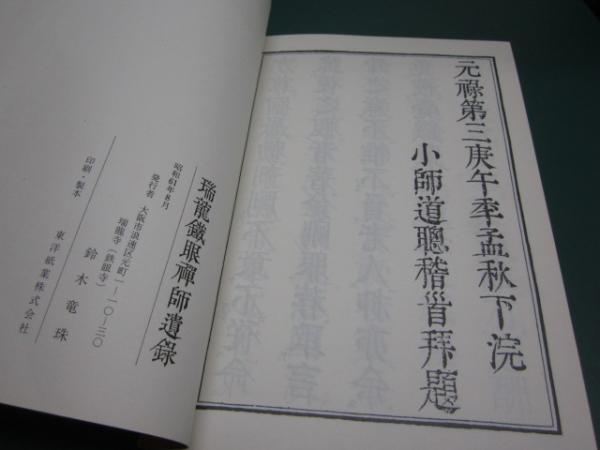 元祿第三庚午季孟秋下浣
小師道聰稽首拜題
瑞龍鐵眼禪師遺錄
昭和61年8月
発行者 大阪市浪速区元町一ー一〇ー三〇
瑞龍寺(鉄眼寺)
鈴木竜珠
印刷・製本 東洋紙業株式会社